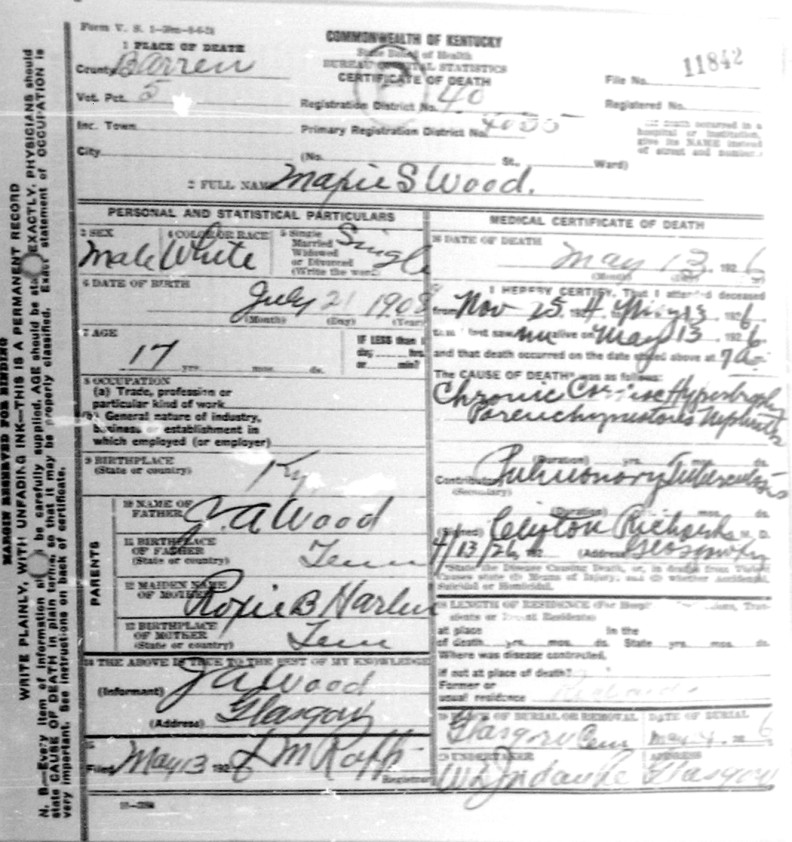 Form V. S.
COMMONWEALTH OF KENTUCKY
State Board of Health
BUREAU OF VITAL STATISTICS
CERTIFICATE OF DEATH
1 PLACE OF DEATH
County Barren
Vot. Pct. 5
Inc. Town
City
Registration District No. 40
Primary Registration District No.
(No. St., Ward)
File No. 11842
Registered No.
(If death occurred in a
hospital or institution,
give its NAME instead
of street and number.)
2 FULL NAME S Wood.
PERSONAL AND STATISTICAL PARTICULARS
3 SEX
Male
4 COLOR OR RACE
White
5 Single
Married
Widowed
or Divorced
(Write the word)
Single
6 DATE OF BIRTH
July 21 1908
(Month) (Day) (Year)
7 AGE
17 yrs. mos. ds.
IF LESS than 1
day, hrs.
or min?
8 OCCUPATION
(a) Trade, profession or
particular kind of work
(b) General nature of industry,
business or establishment in
which employed (or employer)
9 BIRTHPLACE
(State or country) Ky
PARENTS
10 NAME OF
FATHER A Wood
11 BIRTHPLACE
OF FATHER
(State or country) Tenn
12 MAIDEN NAME
OF MOTHER B
13 BIRTHPLACE
OF MOTHER
(State or country) Tenn
14 THE ABOVE IS TRUE TO THE BEST OF MY KNOWLEDGE
(Informant) J A Wood
(Address) Glasgow
15
Filed May 13 192
Registrar
MEDICAL CERTIFICATE OF DEATH
16 DATE OF DEATH
May 13, 1926
(Month) (Day) (Yr)
I HEREBY CERTIFY, That I attended deceased
from Nov 25, 192 13, 1926
that I last saw him alive on May 13 1926
and that death occurred on the date stated above at 7 a m.
The CAUSE OF DEATH was as follows:
Chronic
(Duration) yrs. mos. ds.
Contributory Pulmonary Tuberculosis
(Secondary)
(Duration) yrs. mos. ds.
(Signed) Clifton Richards M. D.
/13/26, 192 (Address) Glasgow Ky
*State the Disease Causing Death, or, in deaths from Violent
Causes state (1) Means of Injury; and (2) whether Accidental,
Suicidal or Homicidal.
18 LENGTH OF RESIDENCE (For Hospitals, Institutions, Tran-
sients or Recent Residents)
At place
of death yrs. mos. ds.
In the
State yrs. mos. ds.
Where was disease contracted,
if not at place of death?
Former or
usual residence
19 PLACE OF BURIAL OR REMOVAL
Glasgow Cem
DATE OF BURIAL
May
20 UNDERTAKER
ADDRESS
Glasgow
MARGIN RESERVED FOR BINDING
WRITE PLAINLY, WITH UNFADING INK—THIS IS A PERMANENT RECORD
N. B.—Every item of information should be carefully supplied. AGE should be stated EXACTLY. PHYSICIANS should
state CAUSE OF DEATH in plain terms, so that it may be properly classified. Exact statement of OCCUPATION is
very important. See instructions on back of certificate.